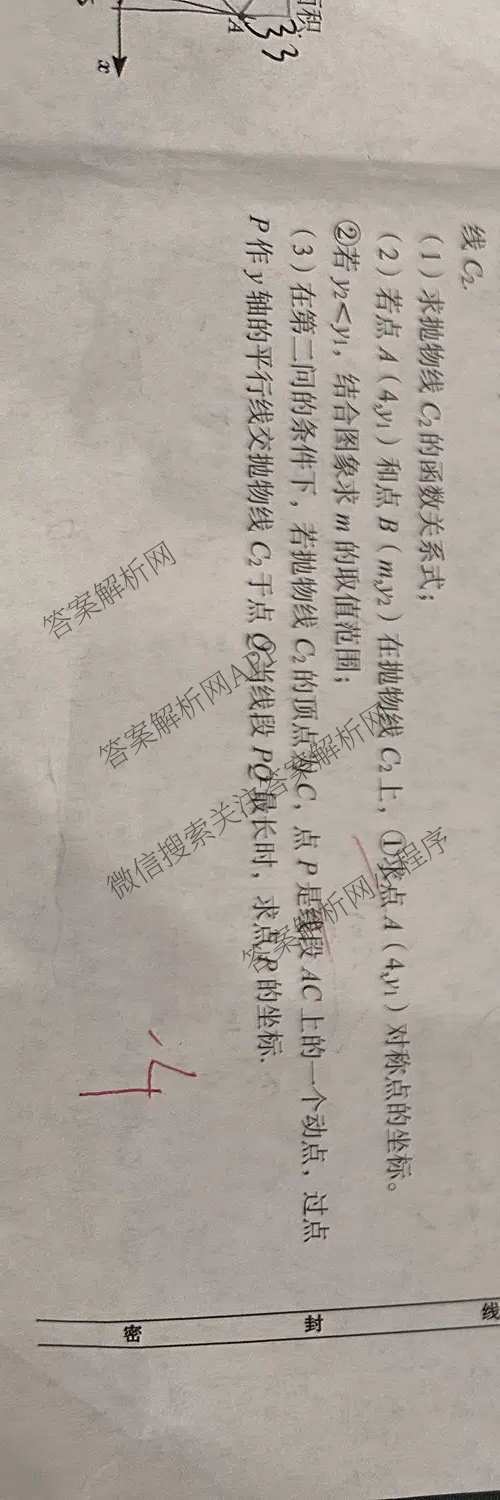 面积
A
33
x
线 C₂.
(1)求抛物线 C₂的函数关系式;
(2)若点 A(4,y₁)和点 B(m,y₂)在抛物线 C₂上,①求点 A(4,y₁)对称点的坐标。
②若 y₂<y₁,结合图象求 m 的取值范围;
(3)在第二问的条件下,若抛物线 C₂的顶点为 C,点 P 是线段 AC 上的一个动点,过点
P 作 y 轴的平行线交抛物线 C₂于点 Q,当线段 PQ 最长时,求点 P 的坐标.
-4
答案解析网
答案解析网APP
答案解析网
微信搜索关注
答案解析网小程序
密 封 线